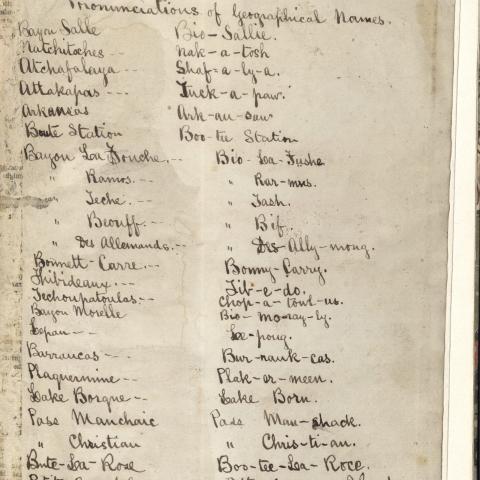 Pronunciations of Geographical Names.
Bayou Salle Bio-Sallie.
Natchitoches -- Nak-a-tosh
Atchafalaya --- Shaf-a-ly-a.
Attakapas --- Tuck-a-paw.
Arkansas Ark-an-saw
Boute Station Boo-tee Station
Bayou La Fouche,-- Bio-La-Fushe
" Ramos.-- " Rar-mus.
" Teche.-- " Tash.
" Beouff.-- " Bif.
" Des Allemands.-- " Des-Ally-mong.
Bonnett-Carre.-- Bonny-Carry.
Thibideaux.-- Tib-e-do.
Techoupatoulas-- Chop-a-toul-us.
Bayou Morelle Bio-mo-ray-ly.
Lepan-- Le-pong.
Barrancas-- Bur-rank-cas.
Plaquermine-- Plak-er-meen.
Lake Borgne-- Lake Born.
Pass Manchaic Pass Man-shack.
" Christian " Chris-ti-an.
Bute-La-Rose Boo-tee-La-Roce.